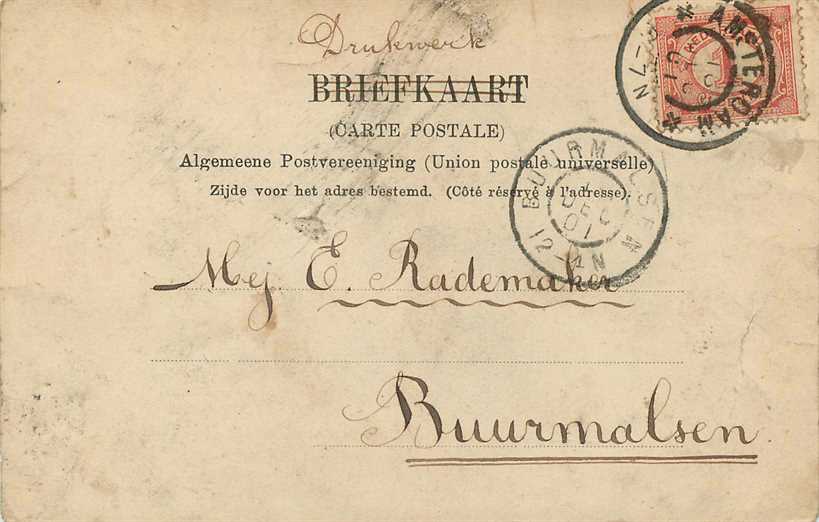 Drukwerk
BRIEFKAART
(CARTE POSTALE)
Algemeene Postvereeniging (Union postale universelle)
Zijde voor het adres bestemd. (Côté réservé à l'adresse).
AMSTERDAM
BUURMALSEN
01
12-1N
Mej. E. Rademaker
Buurmalsen.